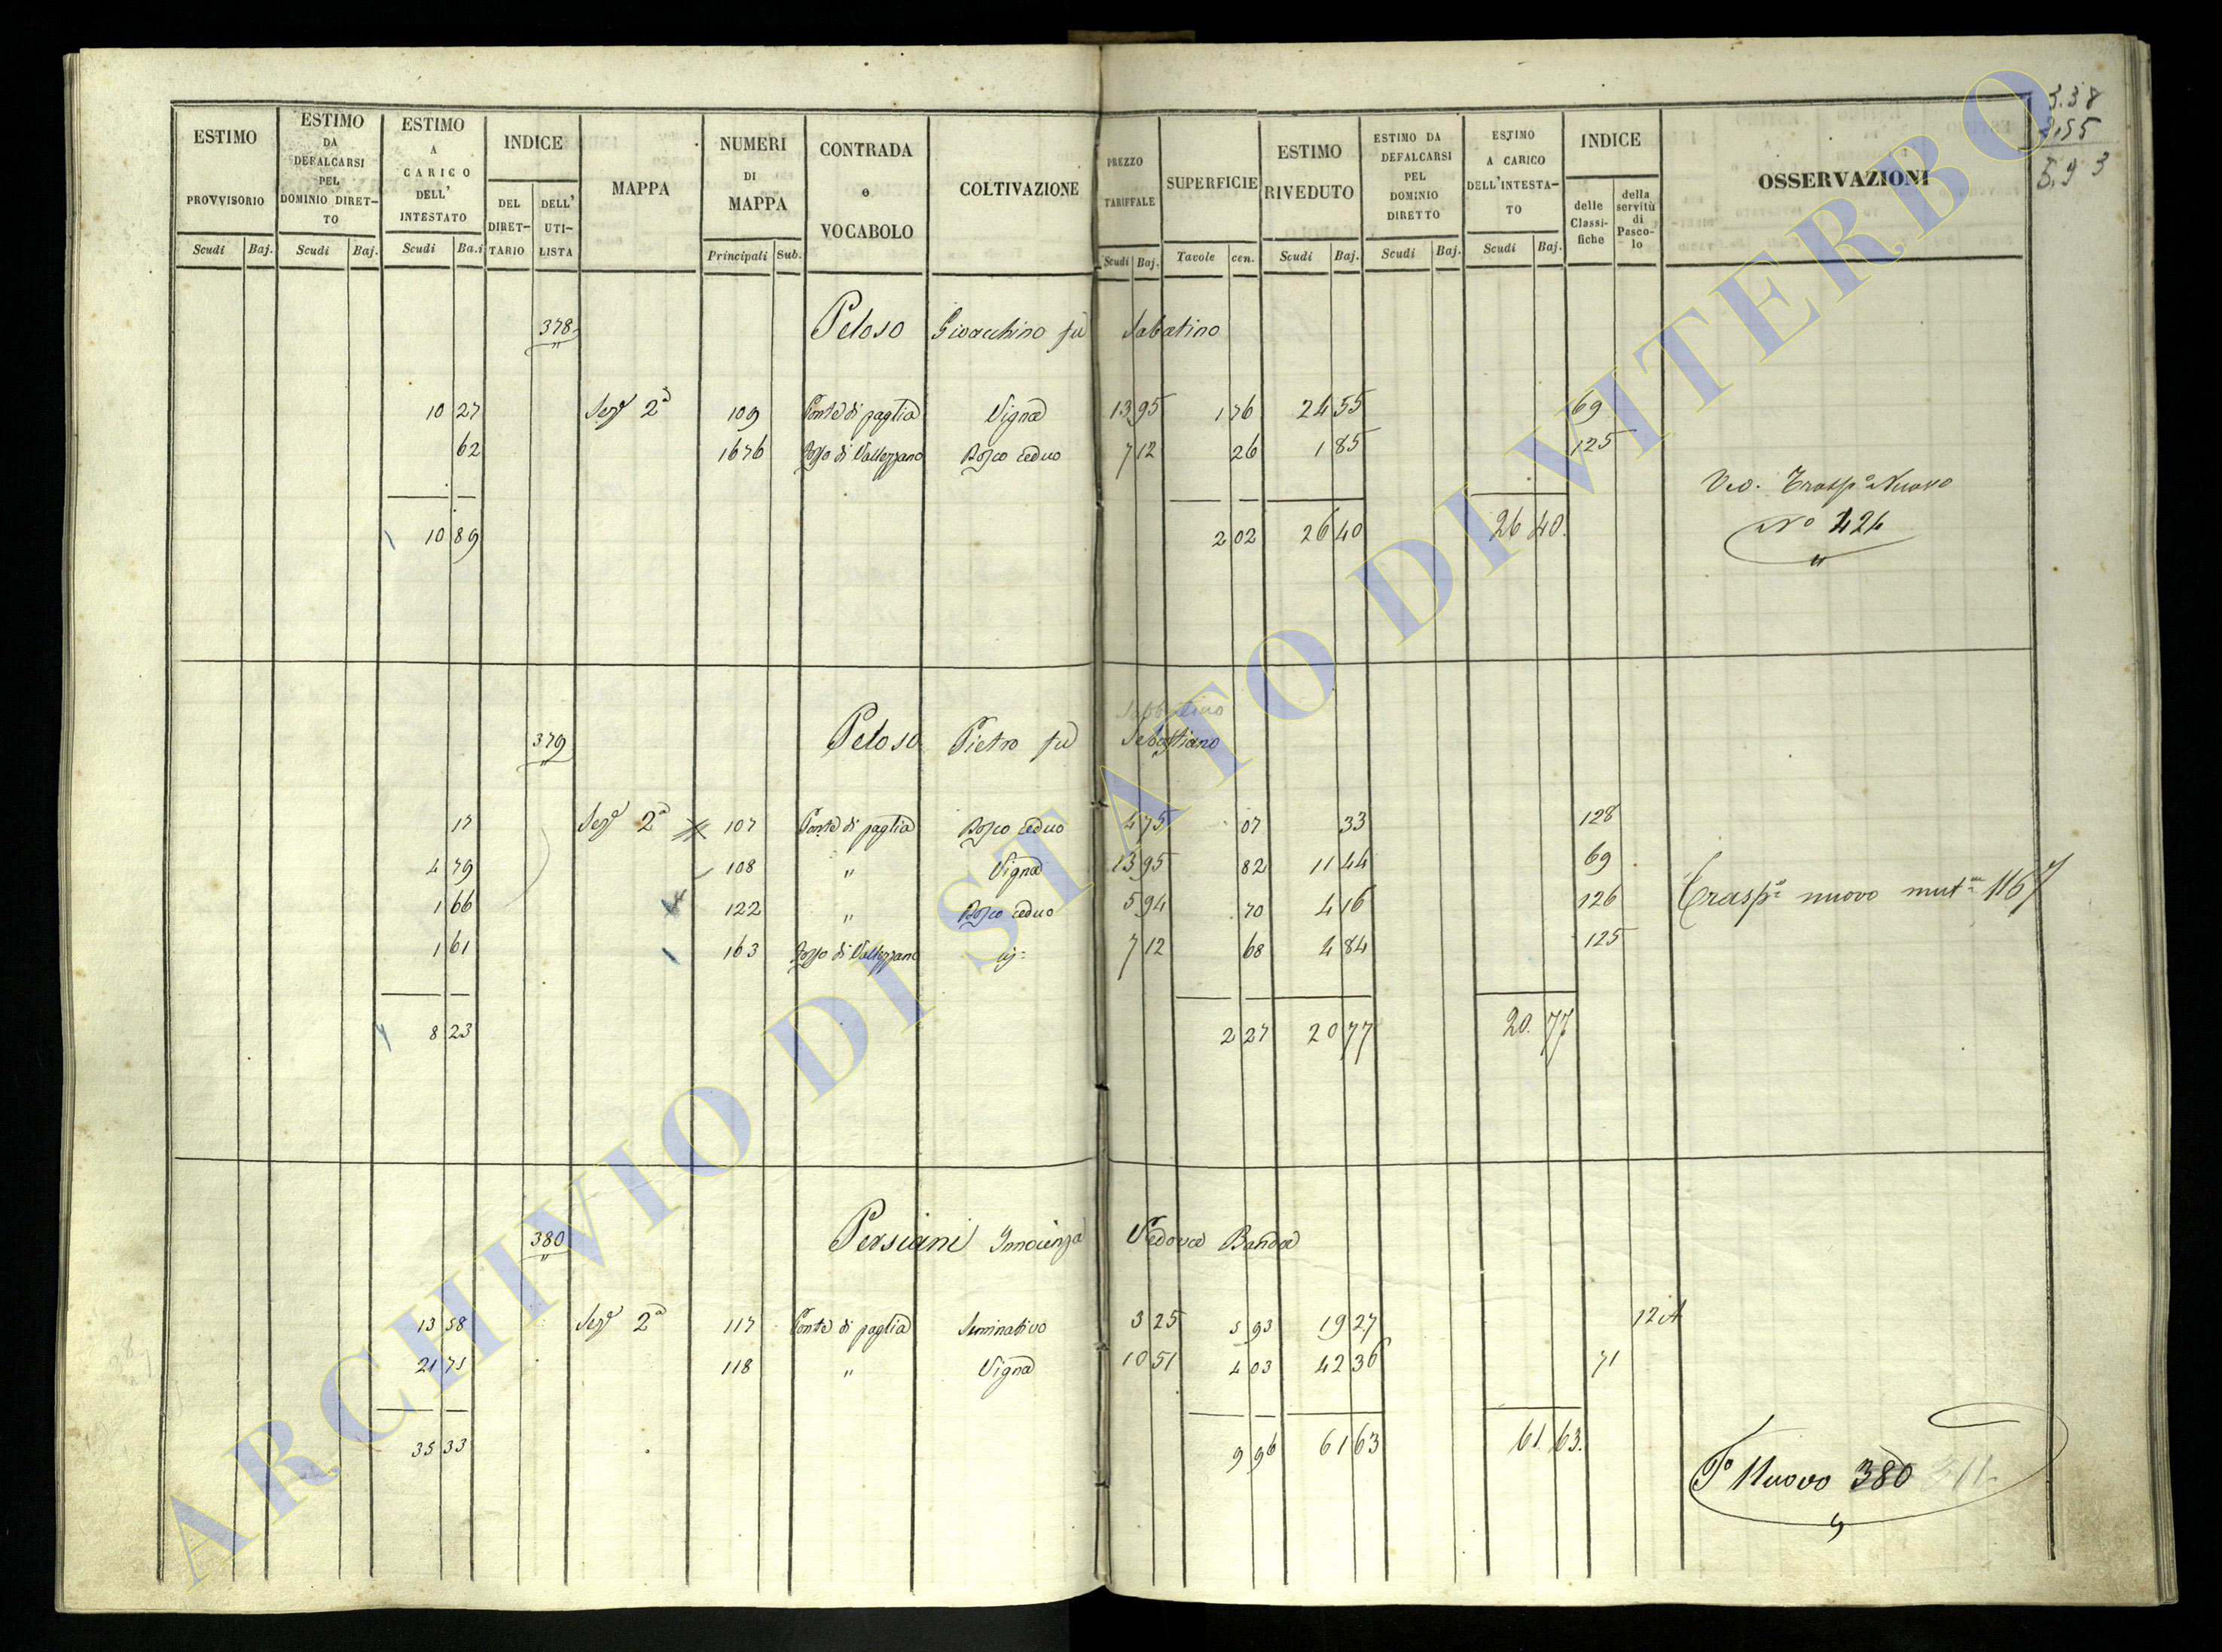 ESTIMO PROVVISORIO Scudi Baj.
ESTIMO DA DEFALCARSI PEL DOMINIO DIRET-TO Scudi Baj.
ESTIMO A CARICO DELL' INTESTATO Scudi Ba.i
INDICE DEL DIRET-TARIO DELL' UTI-LISTA
MAPPA
NUMERI DI MAPPA Principali Sub.
CONTRADA o VOCABOLO
COLTIVAZIONE
PREZZO TARIFFALE Scudi Baj.
SUPERFICIE Tavole cen.
ESTIMO RIVEDUTO Scudi Baj.
ESTIMO DA DEFALCARSI PEL DOMINIO DIRETTO Scudi Baj.
ESTIMO A CARICO DELL'INTESTA-TO Scudi Baj.
INDICE delle Classi-fiche della servitù di Pasco-lo
OSSERVAZIONI
3.38
2.55
5.93
378 Peloso Gioacchino fù Sabatino
10 27 Sez.e 2a 109 Ponte di paglia Vigna 13 95 1 76 24 55 69
62 1676 Pozzo di Vallezzano Bosco ceduo 7 12 26 1 85 125
10 89 2 02 26 40 26 40.
Ved. Trasp.o Nuovo
No 424
379 Peloso Pietro fù Sebastiano
Sabbatino
17 Sez.e 2a 107 Ponte di paglia Bosco ceduo 4 75 07 33 128
4 79 108 " Vigna 13 95 82 11 44 69
1 66 122 " Bosco ceduo 5 94 70 4 16 126
1 61 163 Pozzo di Vallezzano 7 12 68 4 84 125
8 23 2 27 20 77 20. 77
Trasp.o nuovo mut.ne 1167
380 Persiani Innocenza Vedova Banda
13 58 Sez.e 2a 117 Ponte di paglia Seminativo 3 25 5 93 19 27 12 A
21 75 118 " Vigna 10 51 4 03 42 36 71
35 33 9 96 61 63 61. 63.
To Nuovo 380
ARCHIVIO DI STATO DI VITERBO